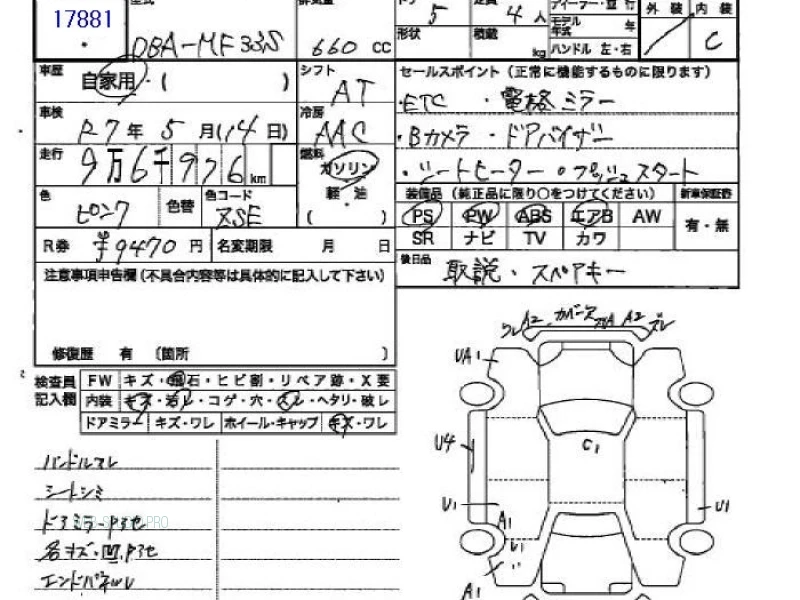 17881
型式 排気量 ドア 5 定員 4 人 外装 内装
DBA-MF33S 660 CC 形状 積載 kg モデル年式 年 ハンドル 左・右 C
車歴 自家用・( ) シフト AT セールスポイント (正常に機能するものに限ります)
・ETC ・電格ミラー
車検 R7年 5 月(14日) 冷房 AAC ・Bカメラ ・ドアバイザー
走行 9万6千926km 燃料 ガソリン ・シートヒーター ・プッシュスタート
軽・油 装備品 (純正品に限り○をつけてください) 新車保証書
色 ピンク 色替 色コード ( ) PS PW ABS エアB AW 有・無
R券 ¥9470円 名変期限 月 日 SR ナビ TV カワ
注意事項申告欄(不具合内容等は具体的に記入して下さい) 後日品 取説・スペアキー
修復歴 有 〔箇所 〕
検査員 FW キズ・飛石・ヒビ割・リペア跡・X要
記入欄 内装 キズ・汚レ・コゲ・穴・スレ・ヘタリ・破レ
ドアミラー キズ・ワレ ホイール・キャップ キズ・ワレ
A2 A2
UA1
C1
U4
U1 U1
A1
A1
ハンドルスレ
シートシミ
名キズ・凹
エンドパネル